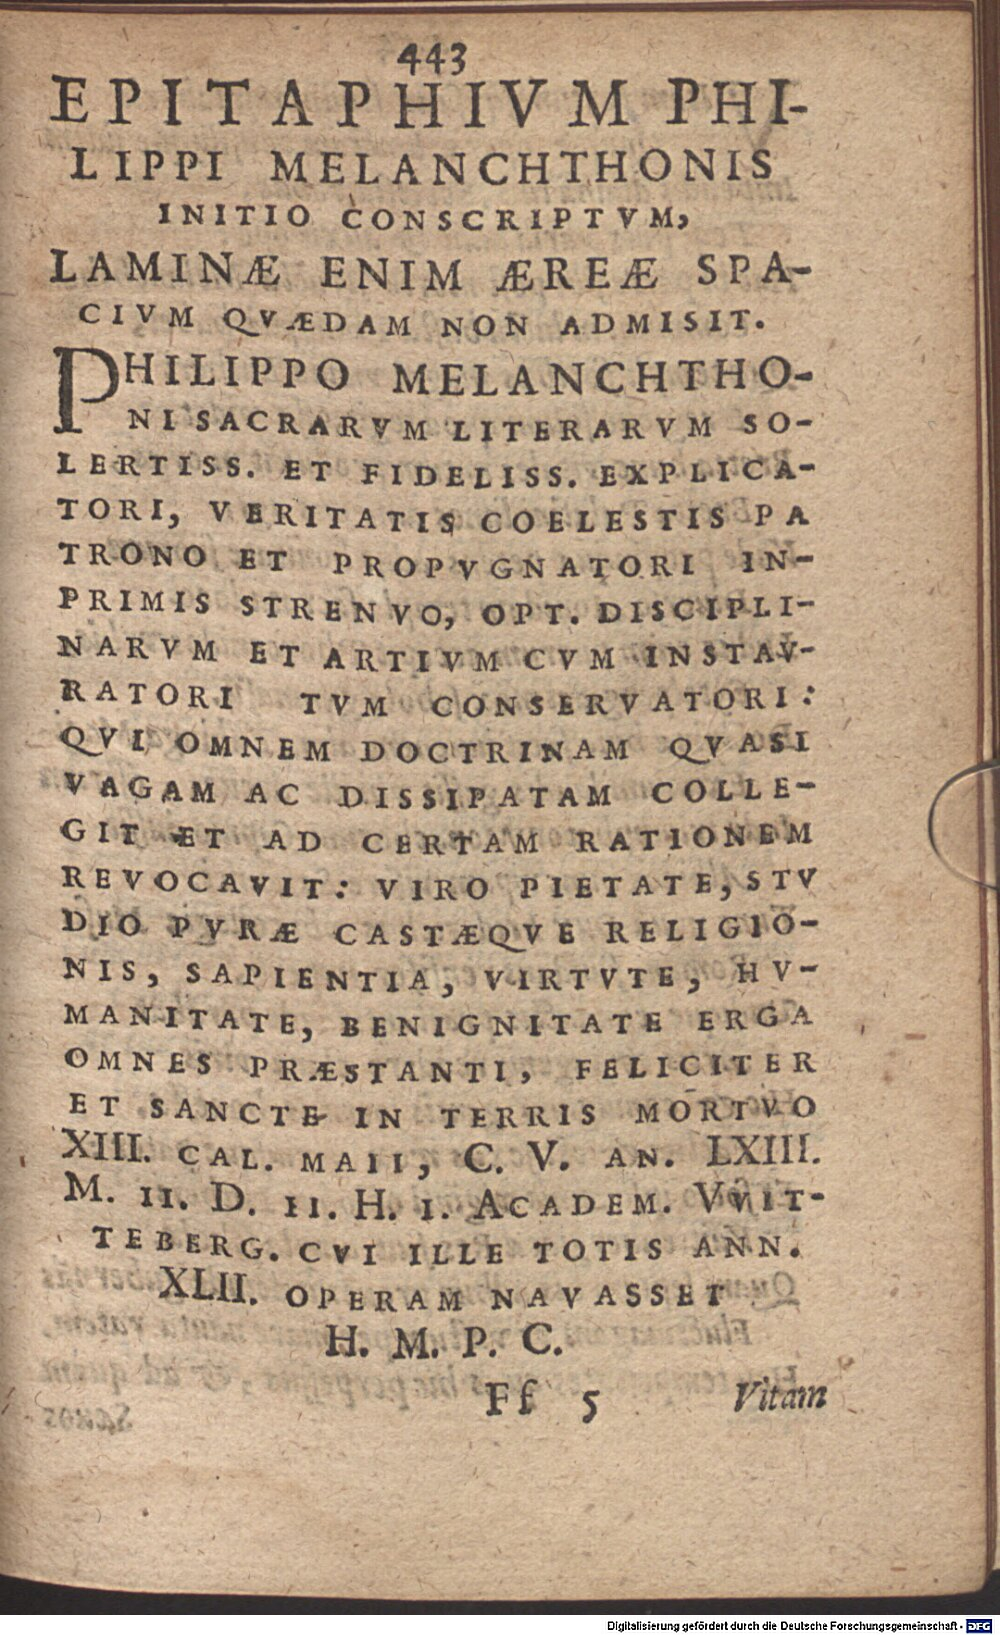 443
EPITAPHIVM PHI-
LIPPI MELANCHTHONIS
INITIO CONSCRIPTVM,
LAMINÆ ENIM ÆREÆ SPA-
CIVM QVÆDAM NON ADMISIT.
PHILIPPO MELANCHTHO-
NI SACRARVM LITERARVM SO-
LERTISS. ET FIDELISS. EXPLICA-
TORI, VERITATIS COELESTIS PA
TRONO ET PROPVGNATORI IN-
PRIMIS STRENVO, OPT. DISCIPLI-
NARVM ET ARTIVM CVM INSTAV-
RATORI TVM CONSERVATORI:
QVI OMNEM DOCTRINAM QVASI
VAGAM AC DISSIPATAM COLLE-
GIT ET AD CERTAM RATIONEM
REVOCAVIT: VIRO PIETATE, STV
DIO PVRÆ CASTÆQVE RELIGIO-
NIS, SAPIENTIA, VIRTVTE, HV-
MANITATE, BENIGNITATE ERGA
OMNES PRÆSTANTI, FELICITER
ET SANCTE IN TERRIS MORTVO
XIII. CAL. MAII, C. V. AN. LXIII.
M. II. D. II. H. I. ACADEM. VVIT-
TEBERG. CVI ILLE TOTIS ANN.
XLII. OPERAM NAVASSET
H. M. P. C.
Ff 5 Vitam
Digitalisierung gefördert durch die Deutsche Forschungsgemeinschaft - DFG